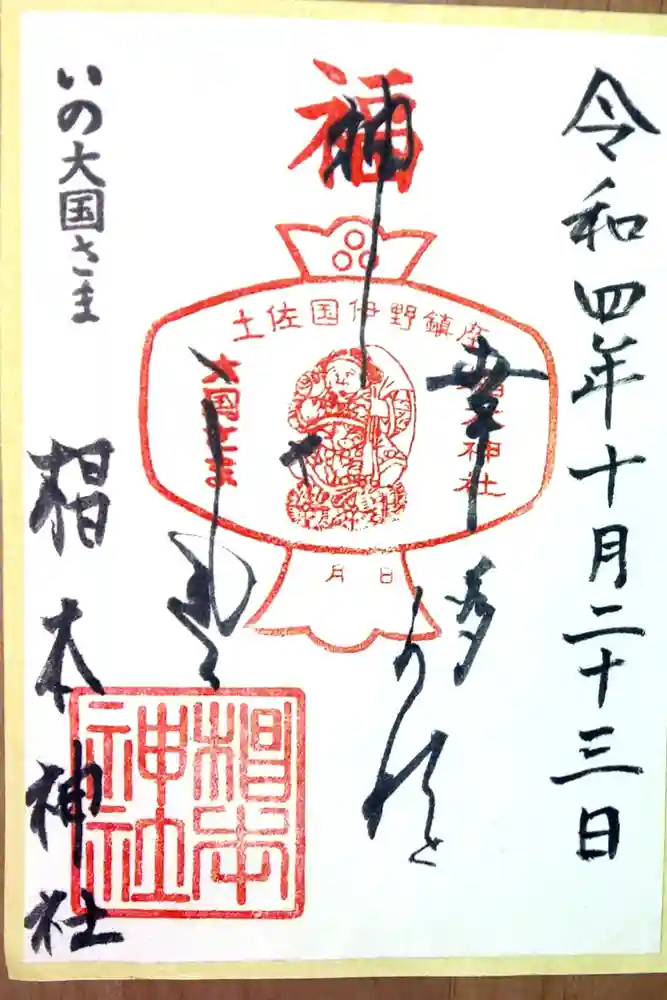 令和四年十月二十三日
幸多かれと
福
土佐国伊野鎮座
椙本神社
大国さま
月 日
いの大国さま
椙本神社
椙本神社